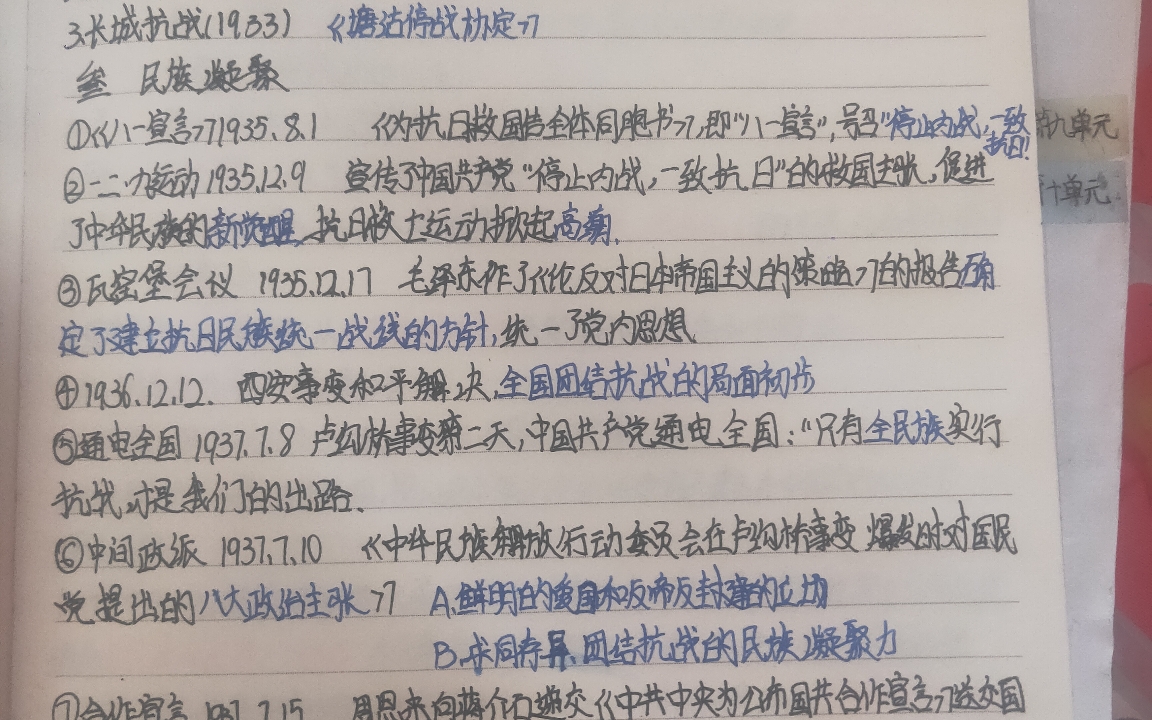 3.长城抗战(1933) 《塘沽停战协定》
叁 民族凝聚
①《八一宣言》1935.8.1 《为抗日救国告全体同胞书》,即"八一宣言",号召"停止内战,一致抗日!
②一二·九运动 1935.12.9 宣传了中国共产党"停止内战,一致抗日"的救国主张,促进
了中华民族的新觉醒,抗日救亡运动掀起高潮.
③瓦窑堡会议 1935.12.17 毛泽东作了《论反对日本帝国主义的策略》的报告确
定了建立抗日民族统一战线的方针,统一了党内思想
④1936.12.12. 西安事变和平解决,全国团结抗战的局面初步
⑤通电全国 1937.7.8 卢沟桥事变第二天,中国共产党通电全国:"只有全民族实行
抗战,才是我们的出路.
⑥中间政派 1937.7.10 《中华民族解放行动委员会在卢沟桥事变 爆发时对国民
党提出的八大政治主张》 A.鲜明的爱国和反帝反封建的立场
B.求同存异、团结抗战的民族凝聚力
⑦合作宣言 1937.7.15 周恩来向蒋介石递交《中共中央为公布国共合作宣言》送交国
第九单元
十单元